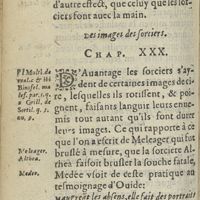 d'autre effect, que celuy que les sor-
ciers font auec la main.
Les images des sorciers.
CHAP. XXX.
D'Auantage les sorciers s'ay-
dent de certaines images de ci-
re, lesquelles ils rotissent, & poi-
gnent, faisants languir leurs enne-
mis tout autant qu'ils sont durer
leurs images. Ce qui rapporte à ce
que l'on a escrit de Meleager qui fut
bruslé à mesure, que la sorciere Al-
thea faisoit brusler la souche fatale,
Medée vsoit de ceste pratique au
tesmoignage d'Ouide:
maugrée les absens, elle fait des portraits
Binsfel. in
Grill. de
Sortil. q. 3.
nu. 9.
Meleager.
Althæa.
Medee.